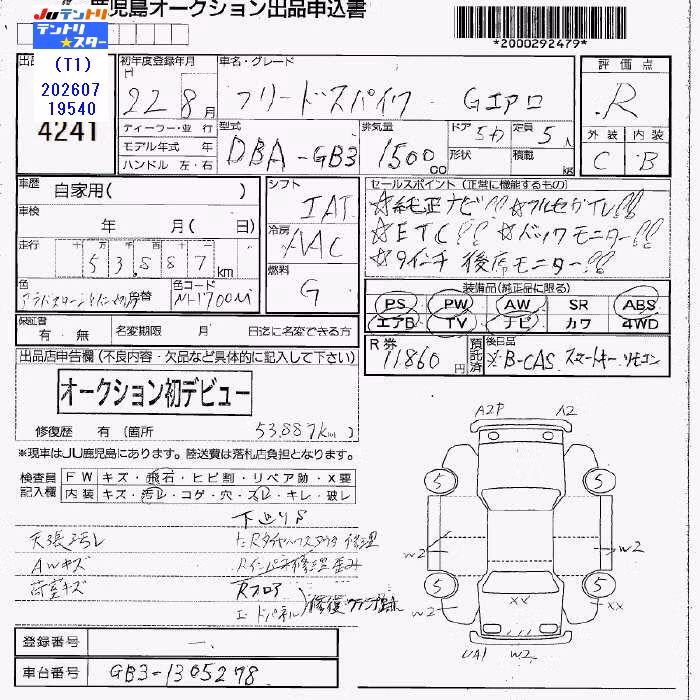 JUテントリ
テントリ★スター
鹿児島オークション出品申込書
*2000292479*
(T1)
202607
19540
4241
初年度登録年月
H
22 8月
車名・グレード
フリードスパイク Gエアロ
評価点
R
外装 内装
C B
ディーラー・並行
モデル年式 年
ハンドル 左・右
型式
DBA-GB3
排気量
1500cc
ドア
5D
形状
定員
5人
積載
kg
車歴
自家用( )
車検
年 月( 日)
走行
十万千百十一
53,887km
色
替
色コード
NH700M
シフト
IAT
冷房
AAC
燃料
G
セールスポイント(正常に機能するもの)
☆純正ナビ!! ☆フルセグTV!!
☆ETC!! ☆バックモニター!!
☆9インチ後席モニター!!
装備品(純正品に限る)
PS PW AW SR ABS
エアB TV ナビ カワ 4WD
保証書
有・無
名変期限 月 日迄に名変できる方
R券
11860円
預託済
後日品
※B-CAS スマートキー リモコン
出品店申告欄(不良内容・欠品など具体的に記入して下さい)
オークション初デビュー
53,887km
修復歴 有(箇所 )
※現車はJU鹿児島にあります。陸送費は落札店負担となります。
検査員
記入欄
FW キズ・飛石・ヒビ割・リペア跡・X要
内装 キズ・汚レ・コゲ・穴・スレ・キレ・破レ
下廻りS
天張汚レ
AWキズ
荷室キズ
Rフロア
エンドパネル
A2P A2
5 5
W2 W2
5 5
W2 XX XX
UA1 W2
登録番号
一
車台番号
GB3-1305278